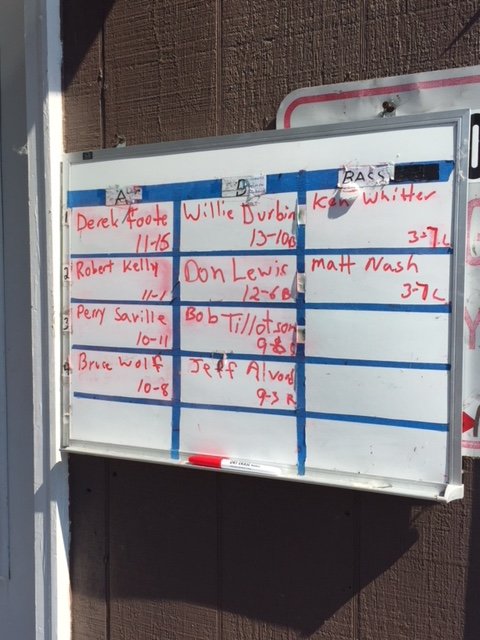 A
B
BASS
1
Derek Foote
11-15
Willie Durbin
13-10B
Ken Whitter
3-7L
2
Robert Kelly
11-1
Don Lewis
12-6B
Matt Nash
3-7L
3
Perry Saville
10-11
Bob Tillotson
4
Bruce Wolf
10-8
Jeff Alvord
9-3 R